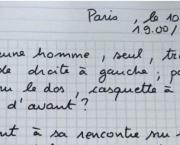 Paris, le 10
19.00/
une homme, seul, tr
de droite à gauche; p
le dos, casquette à
d'avant?
nt à sa rencontre su